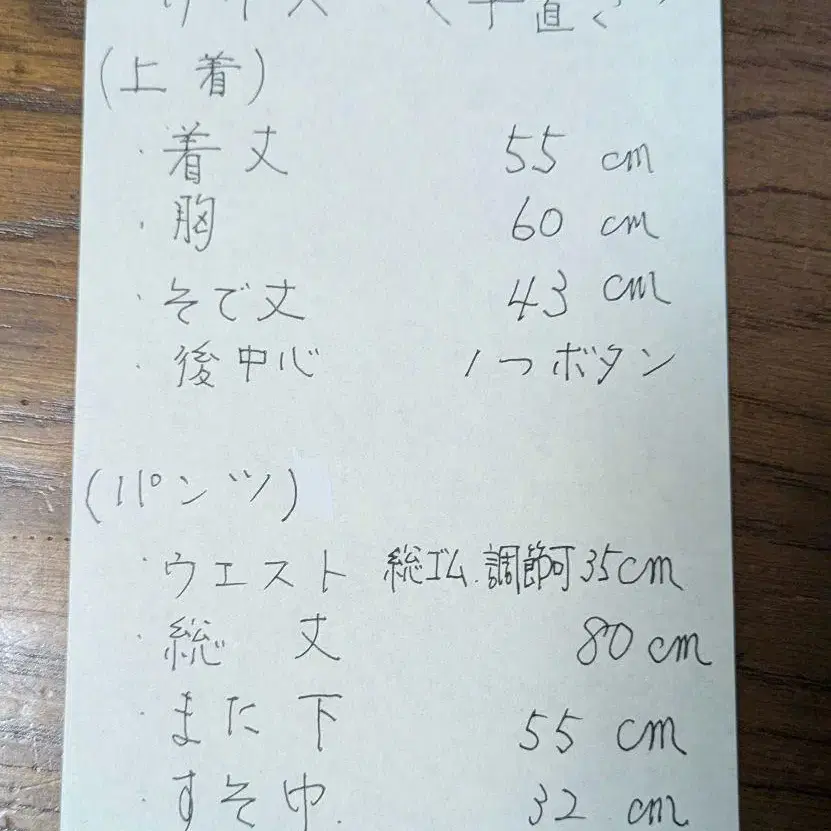 サイズ
(上着)
・着丈 55 cm
・胸 60 cm
・そで丈 43 cm
・後中心 1つボタン
(パンツ)
・ウエスト 総ゴム.調節可 35cm
・総丈 80 cm
・また下 55 cm
・すそ巾. 32 cm